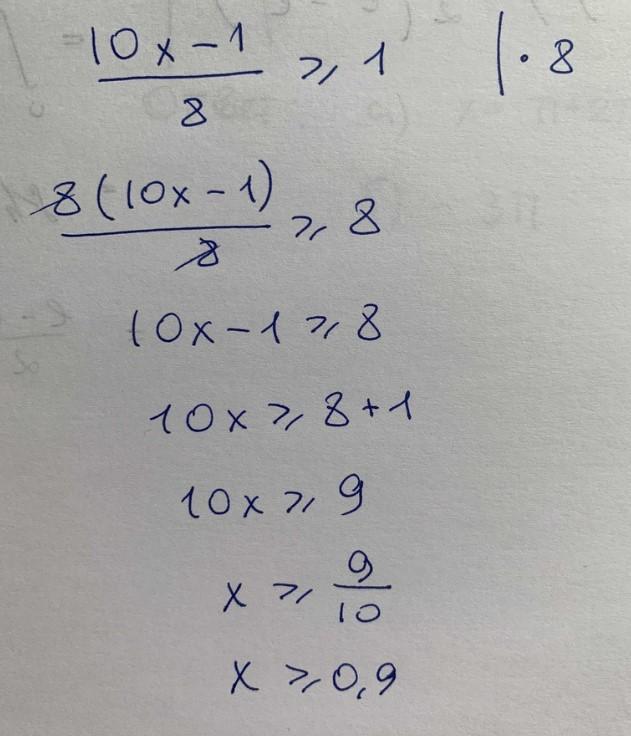 (10x-1)/8 ⩾ 1 | · 8
8(10x-1)/8 ⩾ 8
10x-1 ⩾ 8
10x ⩾ 8+1
10x ⩾ 9
x ⩾ 9/10
x ⩾ 0,9